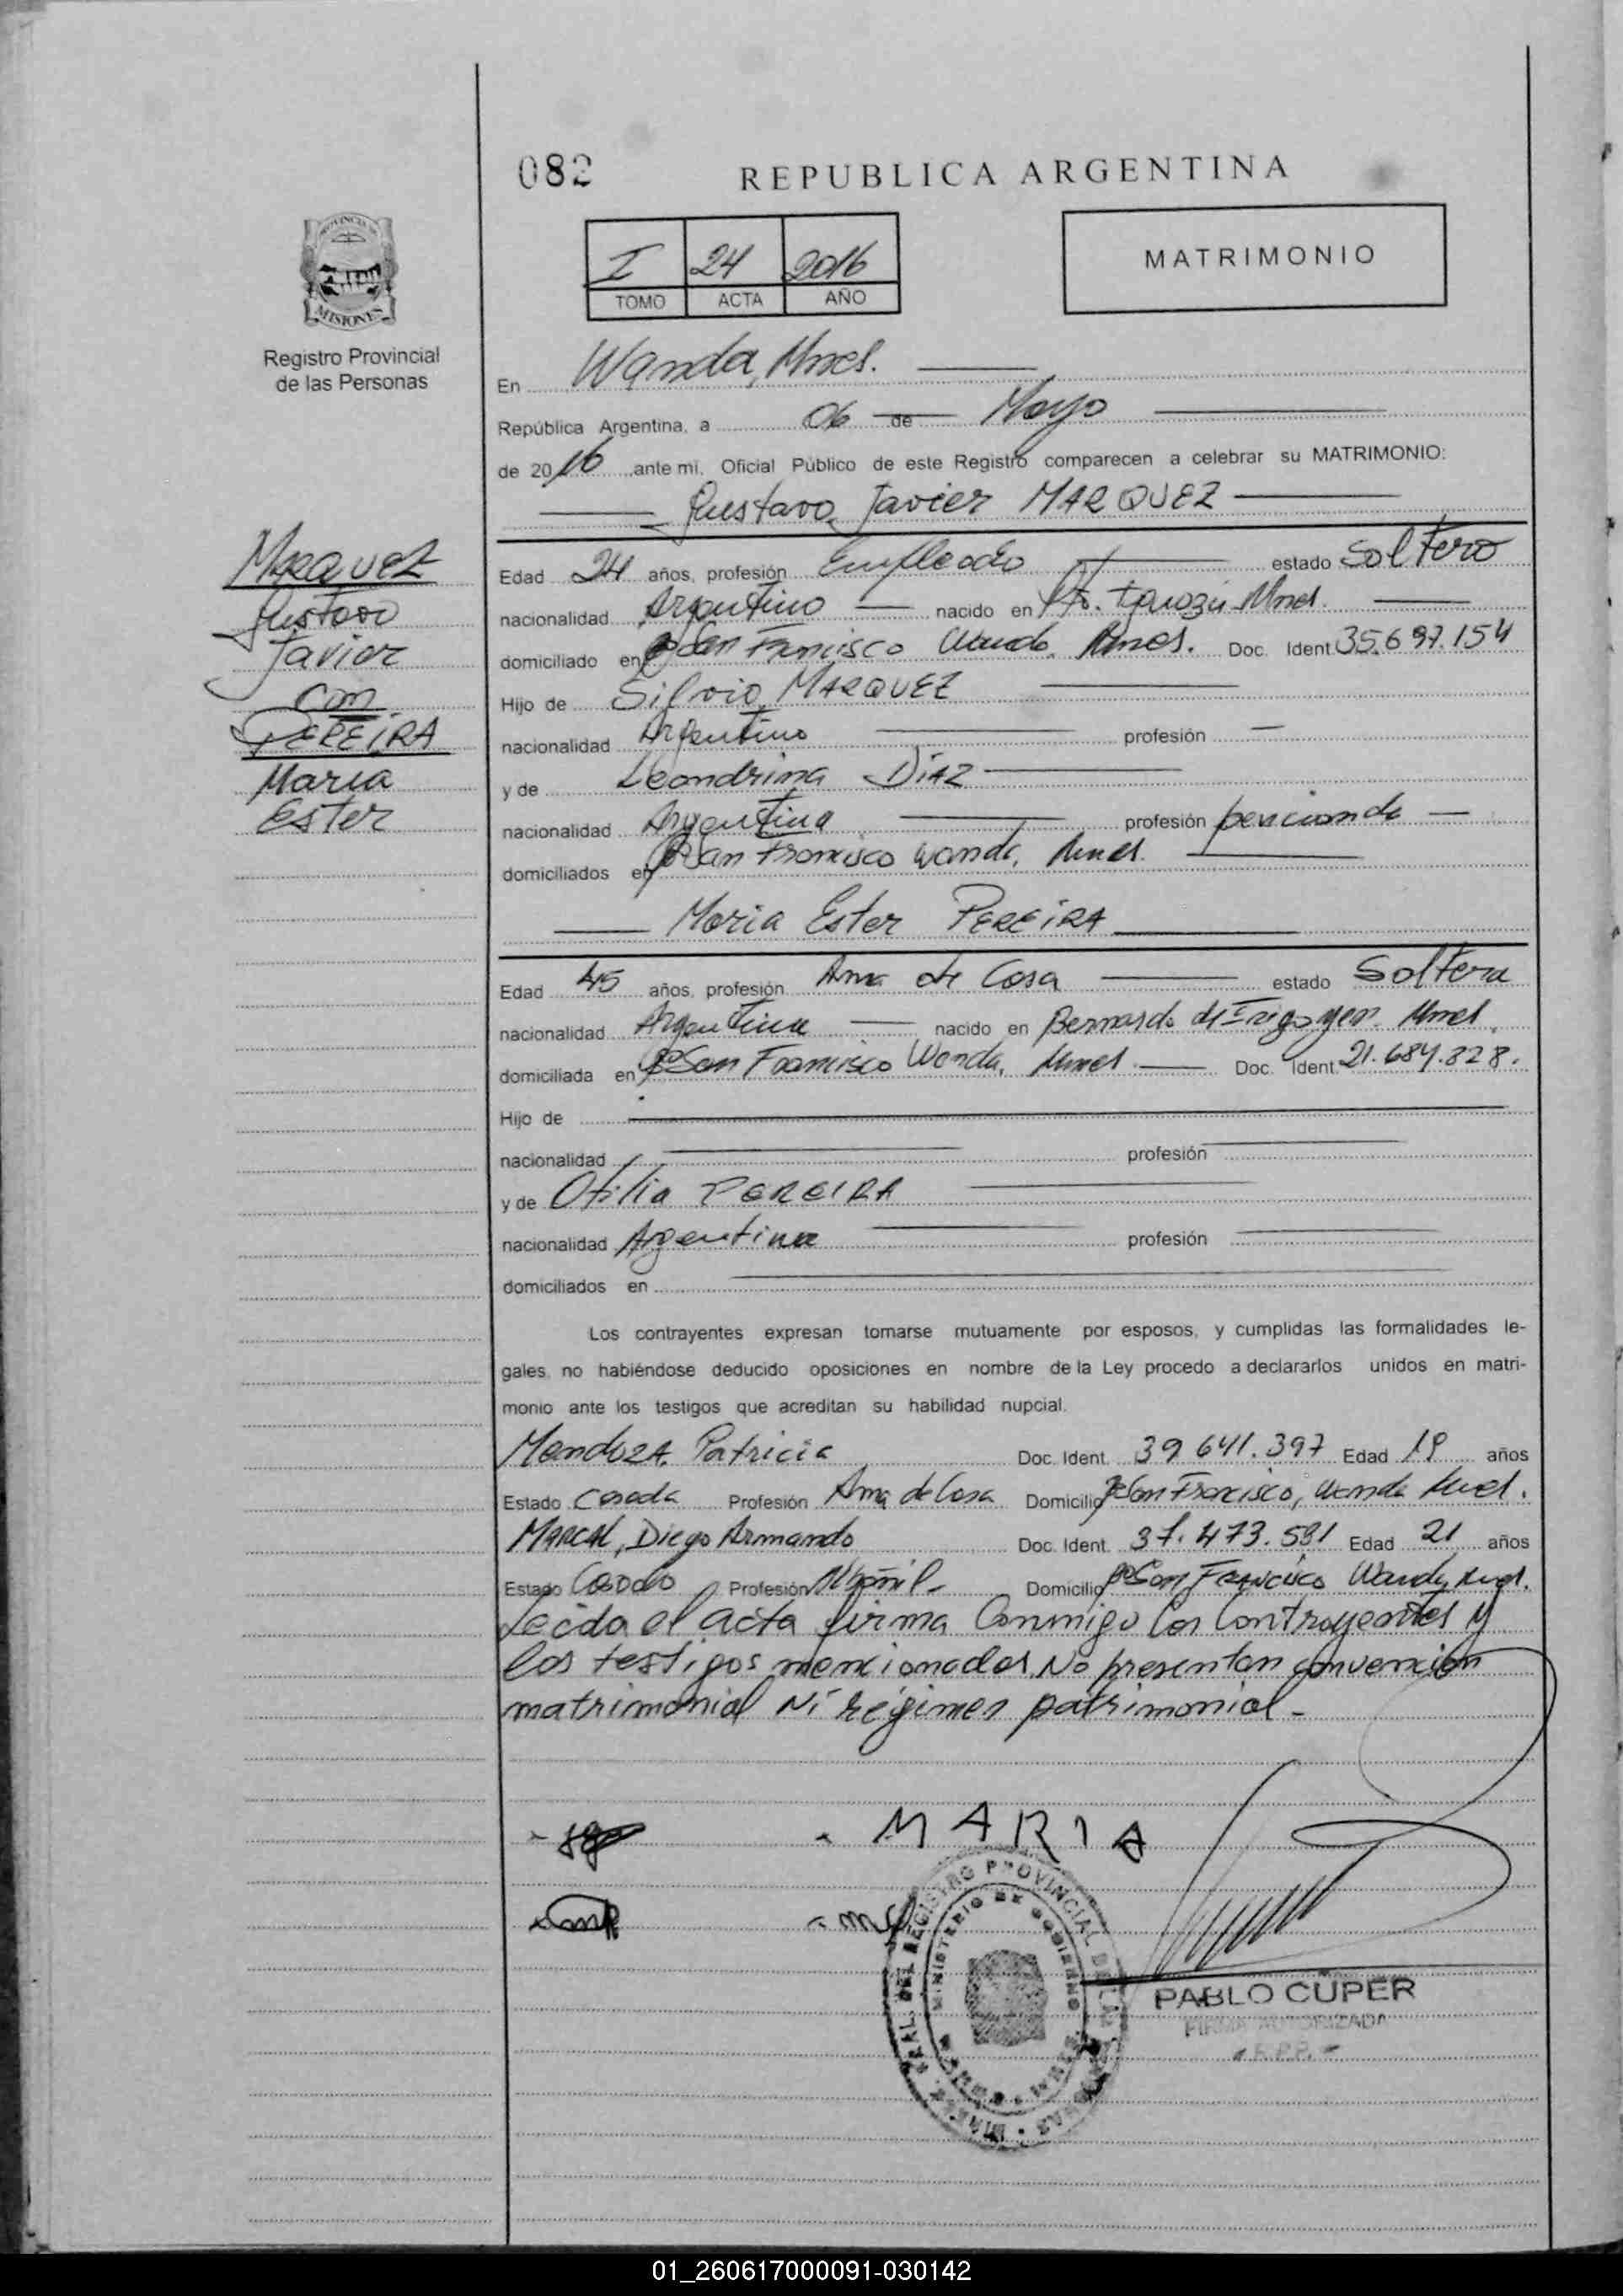 082
REPUBLICA ARGENTINA
I 24 2016
TOMO ACTA AÑO
MATRIMONIO
PROVINCIA DE
MISIONES
Registro Provincial
de las Personas
En Wanda, Mnes.
República Argentina, a 06 de Mayo
de 2016 ,ante mi, Oficial Público de este Registro comparecen a celebrar su MATRIMONIO:
Gustavo Javier MARQUEZ
Marquez
Gustavo
Javier
con
PEREIRA
Maria
Ester
Edad 24 años, profesión Empleado estado Soltero
nacionalidad Argentino nacido en Pto. Mnes.
domiciliado en San Francisco Wanda, Mnes. Doc. Ident. 35.697.154
Hijo de Silvio MARQUEZ
nacionalidad Argentino profesión
y de Leondrina DíAZ
nacionalidad Argentina profesión
domiciliados en San Francisco Wanda, Mnes.
Maria Ester PEREiRA
Edad 45 años, profesión Ama de Casa estado Soltera
nacionalidad Argentina nacido en Bernardo de Irigoyen. Mnes.
domiciliada en San Francisco Wanda, Mnes. Doc. Ident. 21.684.828.
Hijo de
nacionalidad profesión
y de Otilia PEREIRA
nacionalidad Argentina profesión
domiciliados en
Los contrayentes expresan tomarse mutuamente por esposos, y cumplidas las formalidades le-
gales, no habiéndose deducido oposiciones en nombre de la Ley procedo a declararlos unidos en matri-
monio ante los testigos que acreditan su habilidad nupcial.
MendozA, Patricia Doc. Ident. 39.641.397 Edad 19 años
Estado Casada Profesión Ama de Casa Domicilio San Francisco, Wanda Mnes.
Diego Armando Doc. Ident. 37.473.591 Edad 21 años
Estado Casado Profesión Albañil Domicilio San Francisco Wanda, Mnes.
Leida el acta firma Conmigo los Contrayentes y
los testigos mencionados. No presentan convencion
matrimonial Ni régimen patrimonial.
MARIA
REGISTRO PROVINCIAL DE LAS
MINISTERIO DE GOBIERNO
PABLO CUPER
FIRMA AUTORIZADA
R.P.P.
01_260617000091-030142